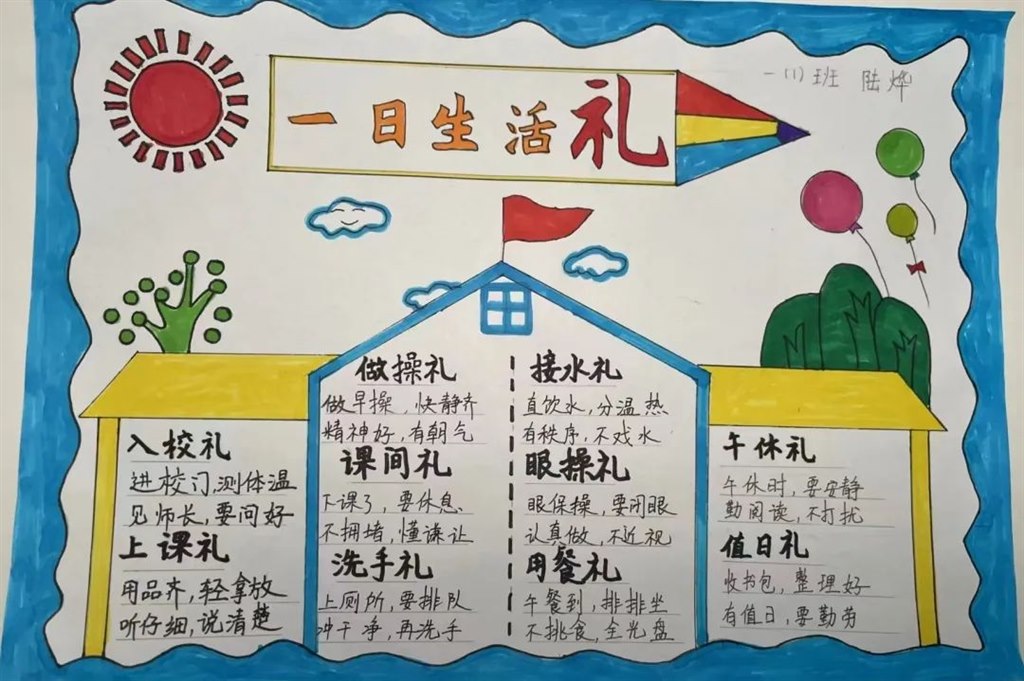 一日生活礼
一(1)班 陆烨
入校礼
进校门,测体温
见师长,要问好
上课礼
用品齐,轻拿放
听仔细,说清楚
做操礼
做早操,快静齐
精神好,有朝气
课间礼
下课了,要休息
不拥堵,懂谦让
洗手礼
上厕所,要排队
冲干净,再洗手
接水礼
直饮水,分温热
有秩序,不戏水
眼操礼
眼保操,要闭眼
认真做,不近视
用餐礼
午餐到,排排坐
不挑食,全光盘
午休礼
午休时,要安静
勤阅读,不打扰
值日礼
收书包,整理好
有值日,要勤劳